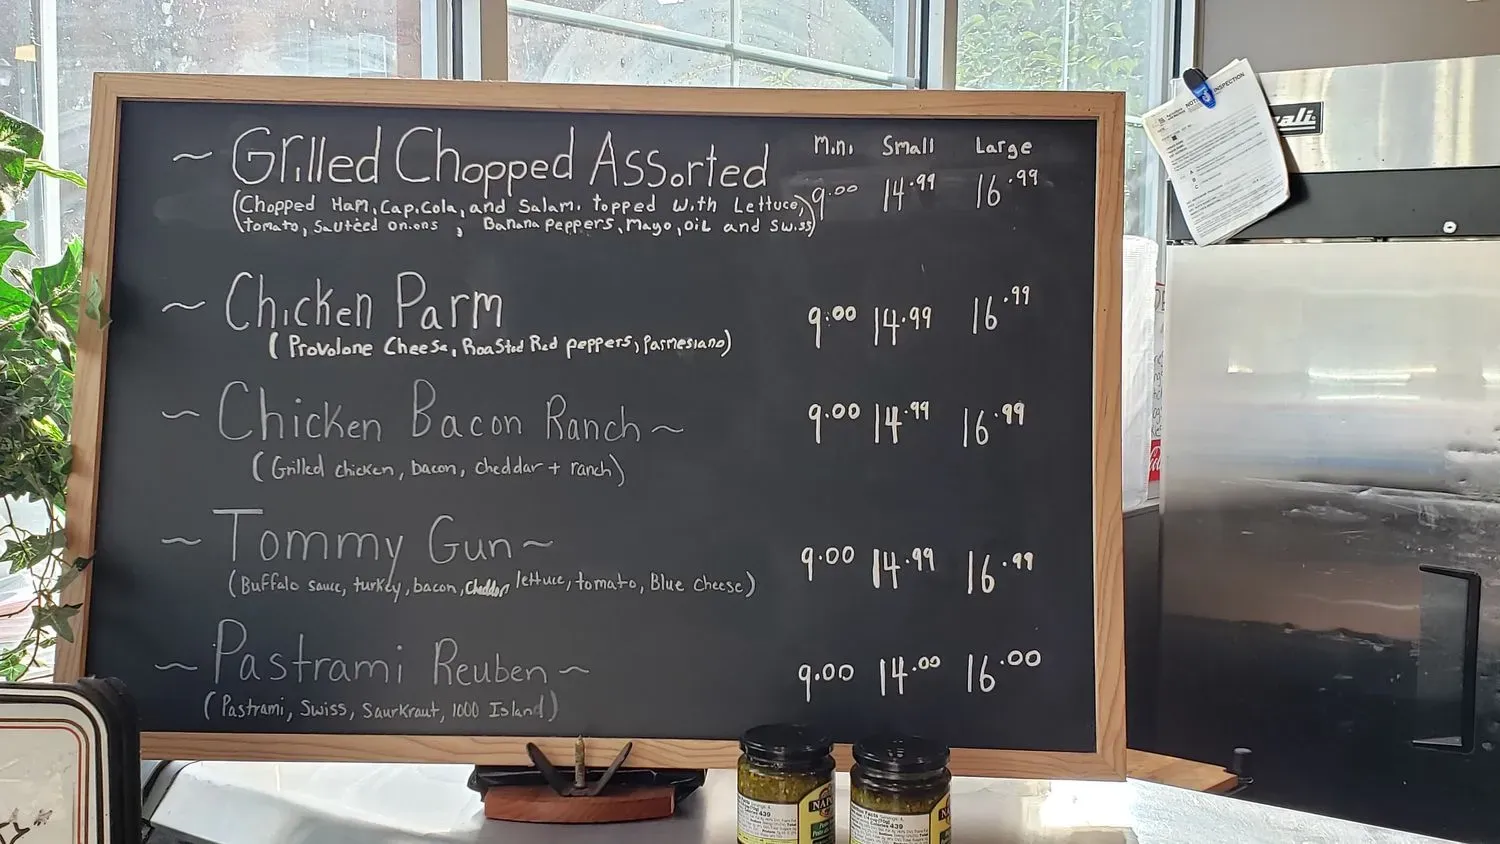 Mini Small Large
~ Grilled Chopped Assorted 9.00 14.99 16.99
(Chopped Ham, Capicola, and Salami topped with Lettuce,
tomato, Sautéed onions, Banana Peppers, Mayo, oil and Swiss)
~ Chicken Parm 9.00 14.99 16.99
(Provolone Cheese, Roasted Red peppers, Parmesiano)
~ Chicken Bacon Ranch ~ 9.00 14.99 16.99
(Grilled chicken, bacon, cheddar + ranch)
~ Tommy Gun ~ 9.00 14.99 16.99
(Buffalo sauce, turkey, bacon, cheddar, lettuce, tomato, Blue cheese)
~ Pastrami Reuben ~ 9.00 14.00 16.00
(Pastrami, Swiss, Saurkraut, 1000 Island)
INSPECTION